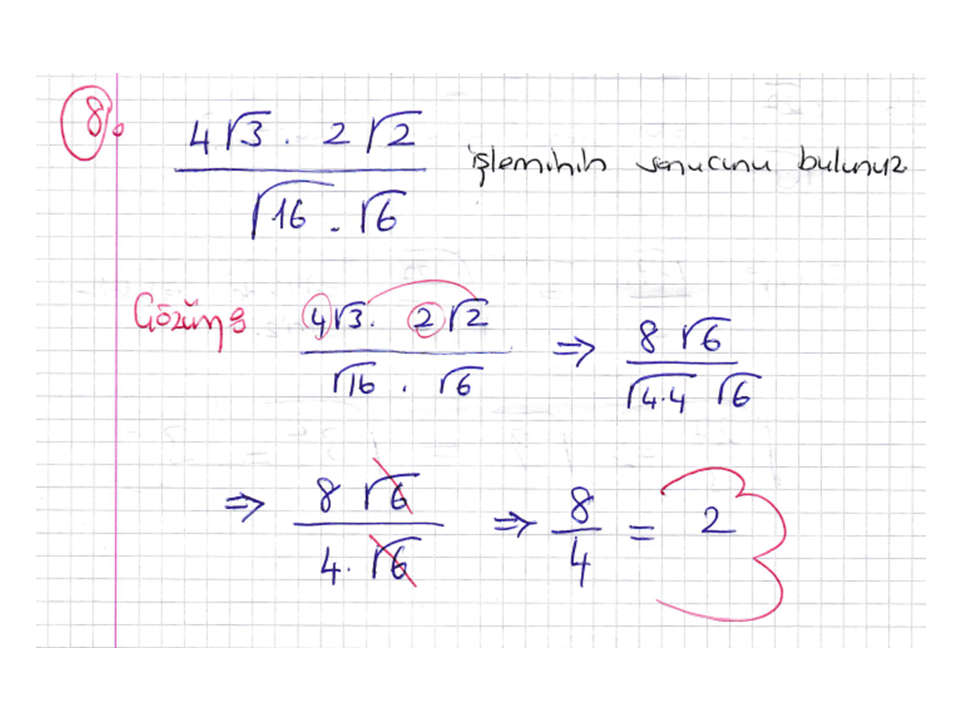 8.
4√3 . 2√2 / √16 . √6 işleminin sonucunu bulunuz
Çözüm: 4√3 . 2√2 / √16 . √6 ⇒ 8√6 / √4.4 √6
⇒ 8√6 / 4.√6 ⇒ 8/4 = 2